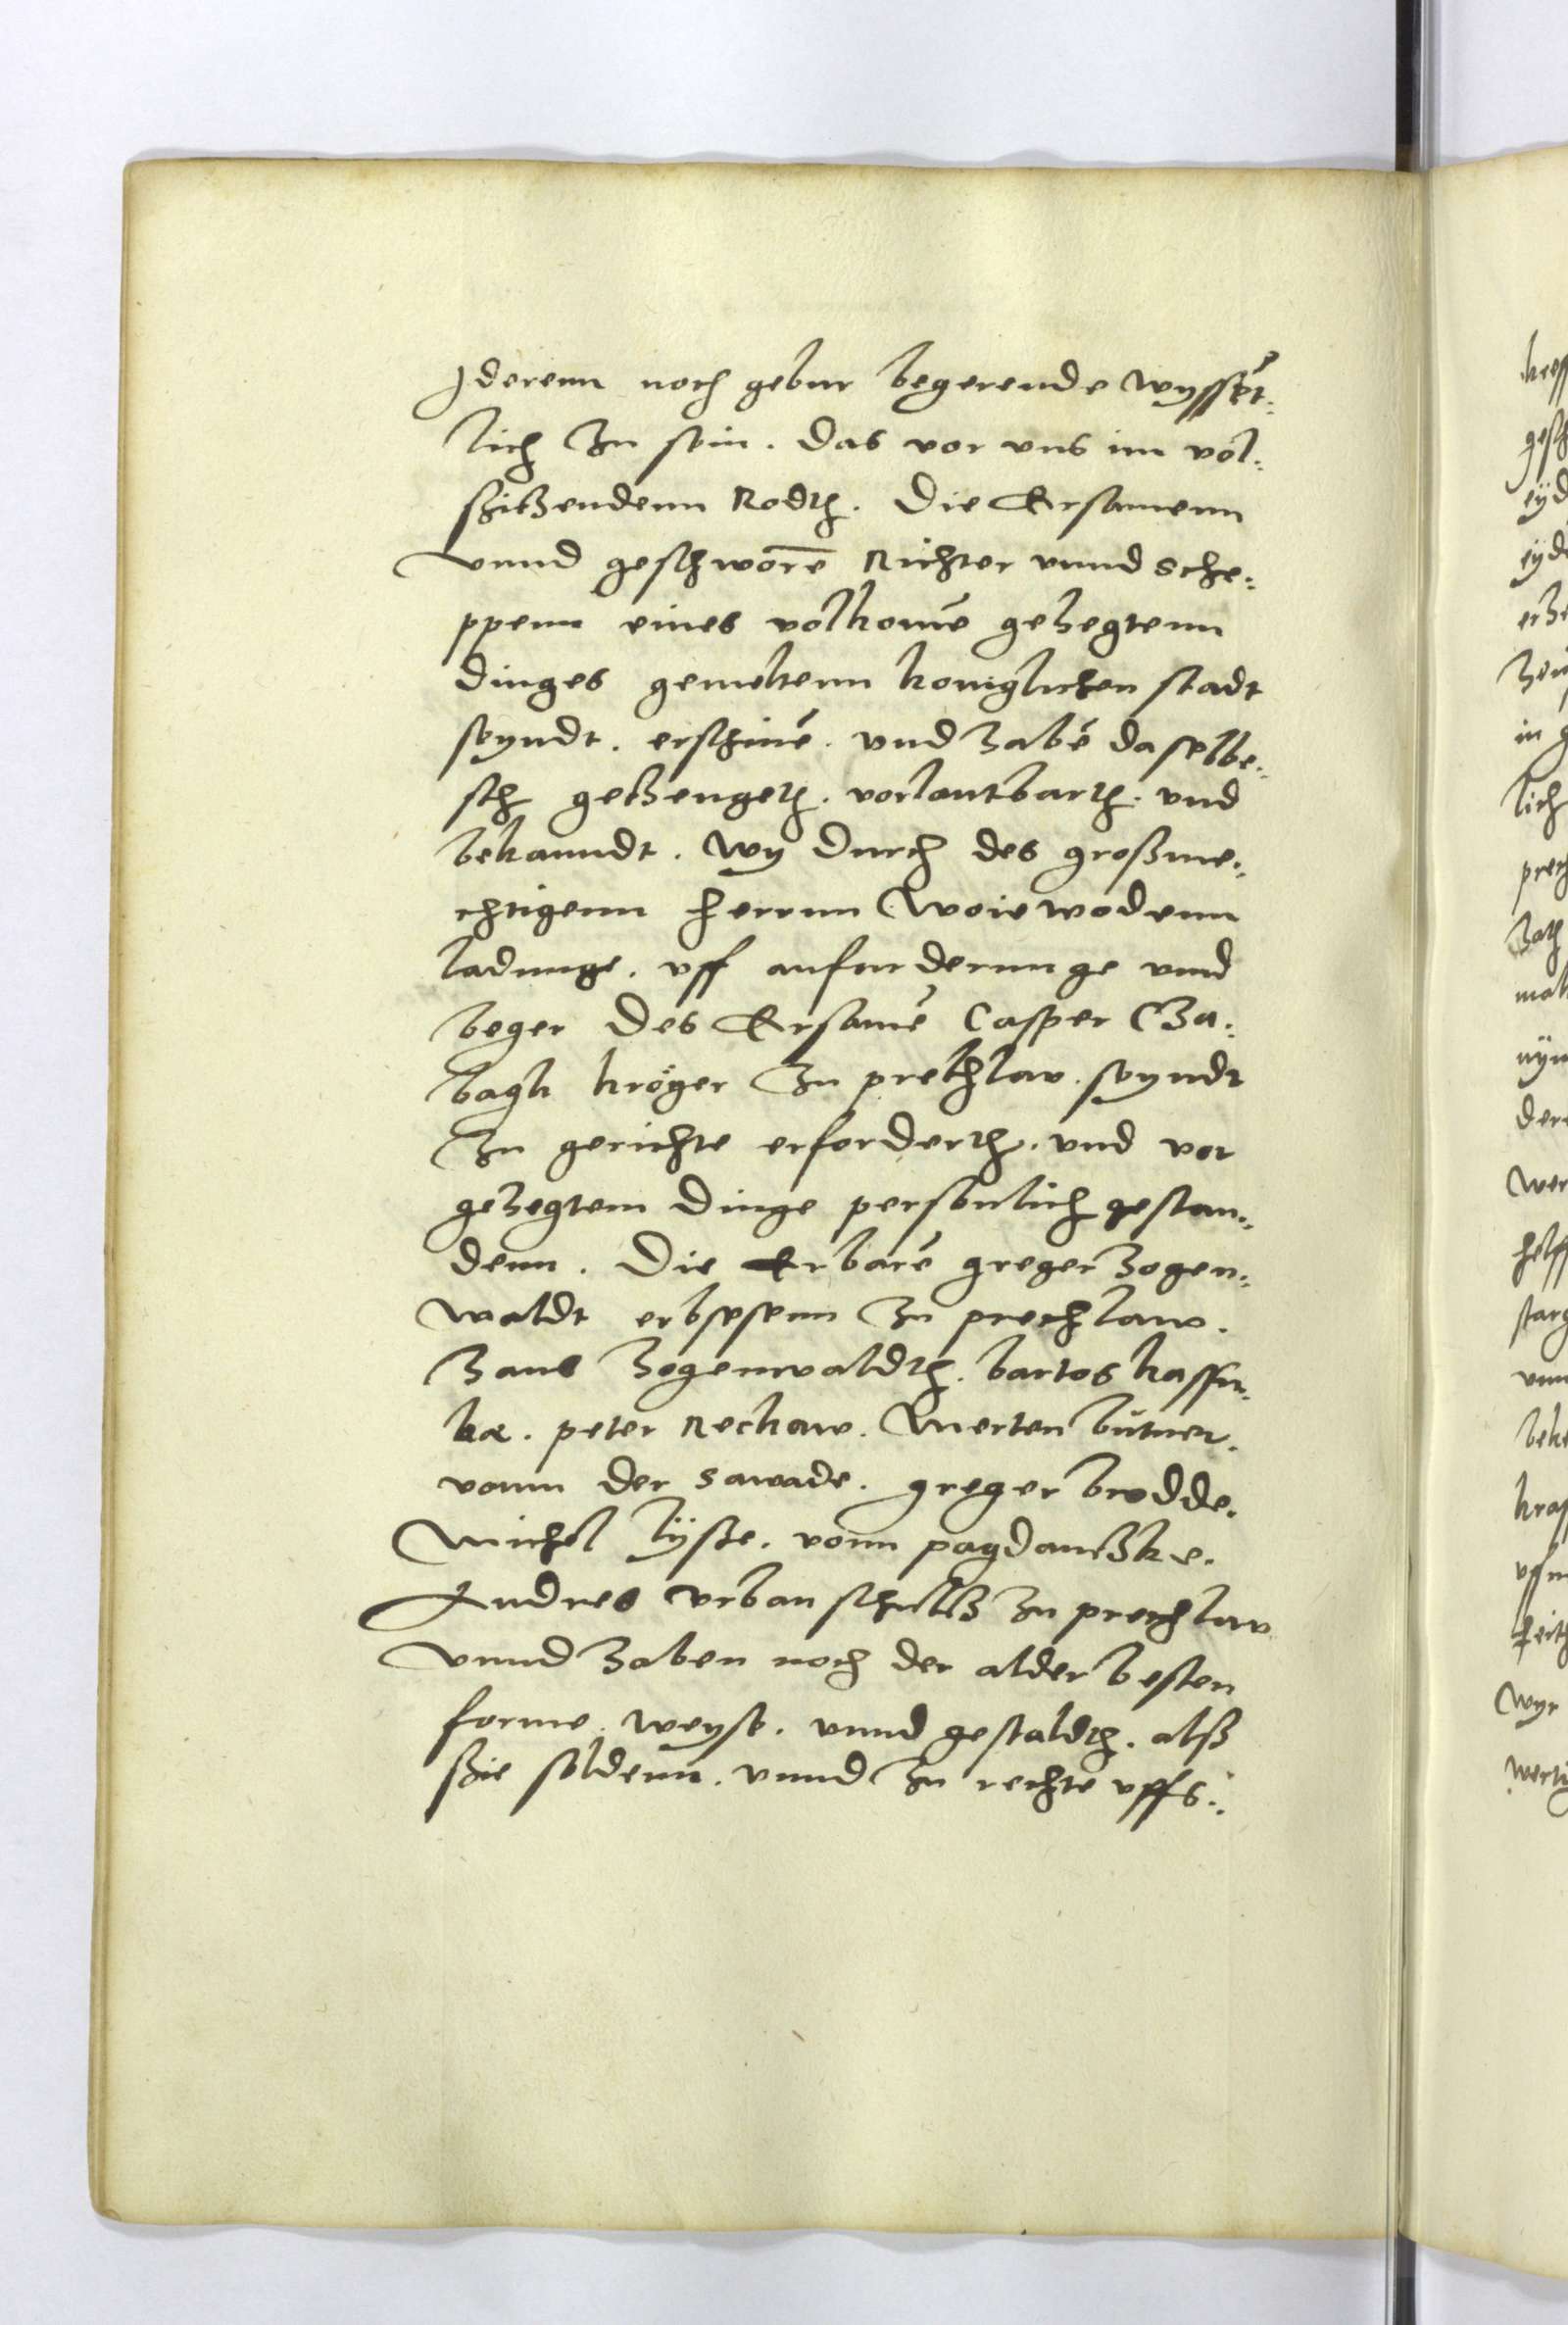 Jderenn noch gebur begerende wyssēt-
lich zu sein. das vor vns im vol-
ßitzendenn Rodth. Die Ersamenn
vnnd geschworē Richter vnnd sche-
ppenn eines volkomē gehegtenn
dinges gemeltenn koniglichen stadt
seyndt. erschinē. vnd habē daselbe-
sth getzeugeth. vorlautbarth. vnd
bekanndt. wy durch des großme-
chtigenn herrnn Woiewodenn
ladunge. vff anfurderunge vnnd
beger des Ersamē Casper Cza-
bagk kröger zu prechlav. seyndt
zu gerichte erforderth. vnd vor
gehegtem dinge personlich gestan-
denn. Die Erbarē greger hogen-
waldt erbsesenn zu prechlaw.
hans hogenwaldth. bartos kassu-
ke. peter Reckaw. Merten bütner.
vonn der sawade. greger brodde.
Michel lÿße. vonn pagdantzke.
Andres vrban schultz zu prechlav
vnnd haben noch der alder besten
forme. weyse. vnnd gestaldth. alß
ßie soldenn. vnnd zu rechte vffs-
kreff
gesch
eÿd
eÿde
in g
lich
prech
hath
nÿm
dere
wer
helff
starg
vnn
beke
kraf
wyr